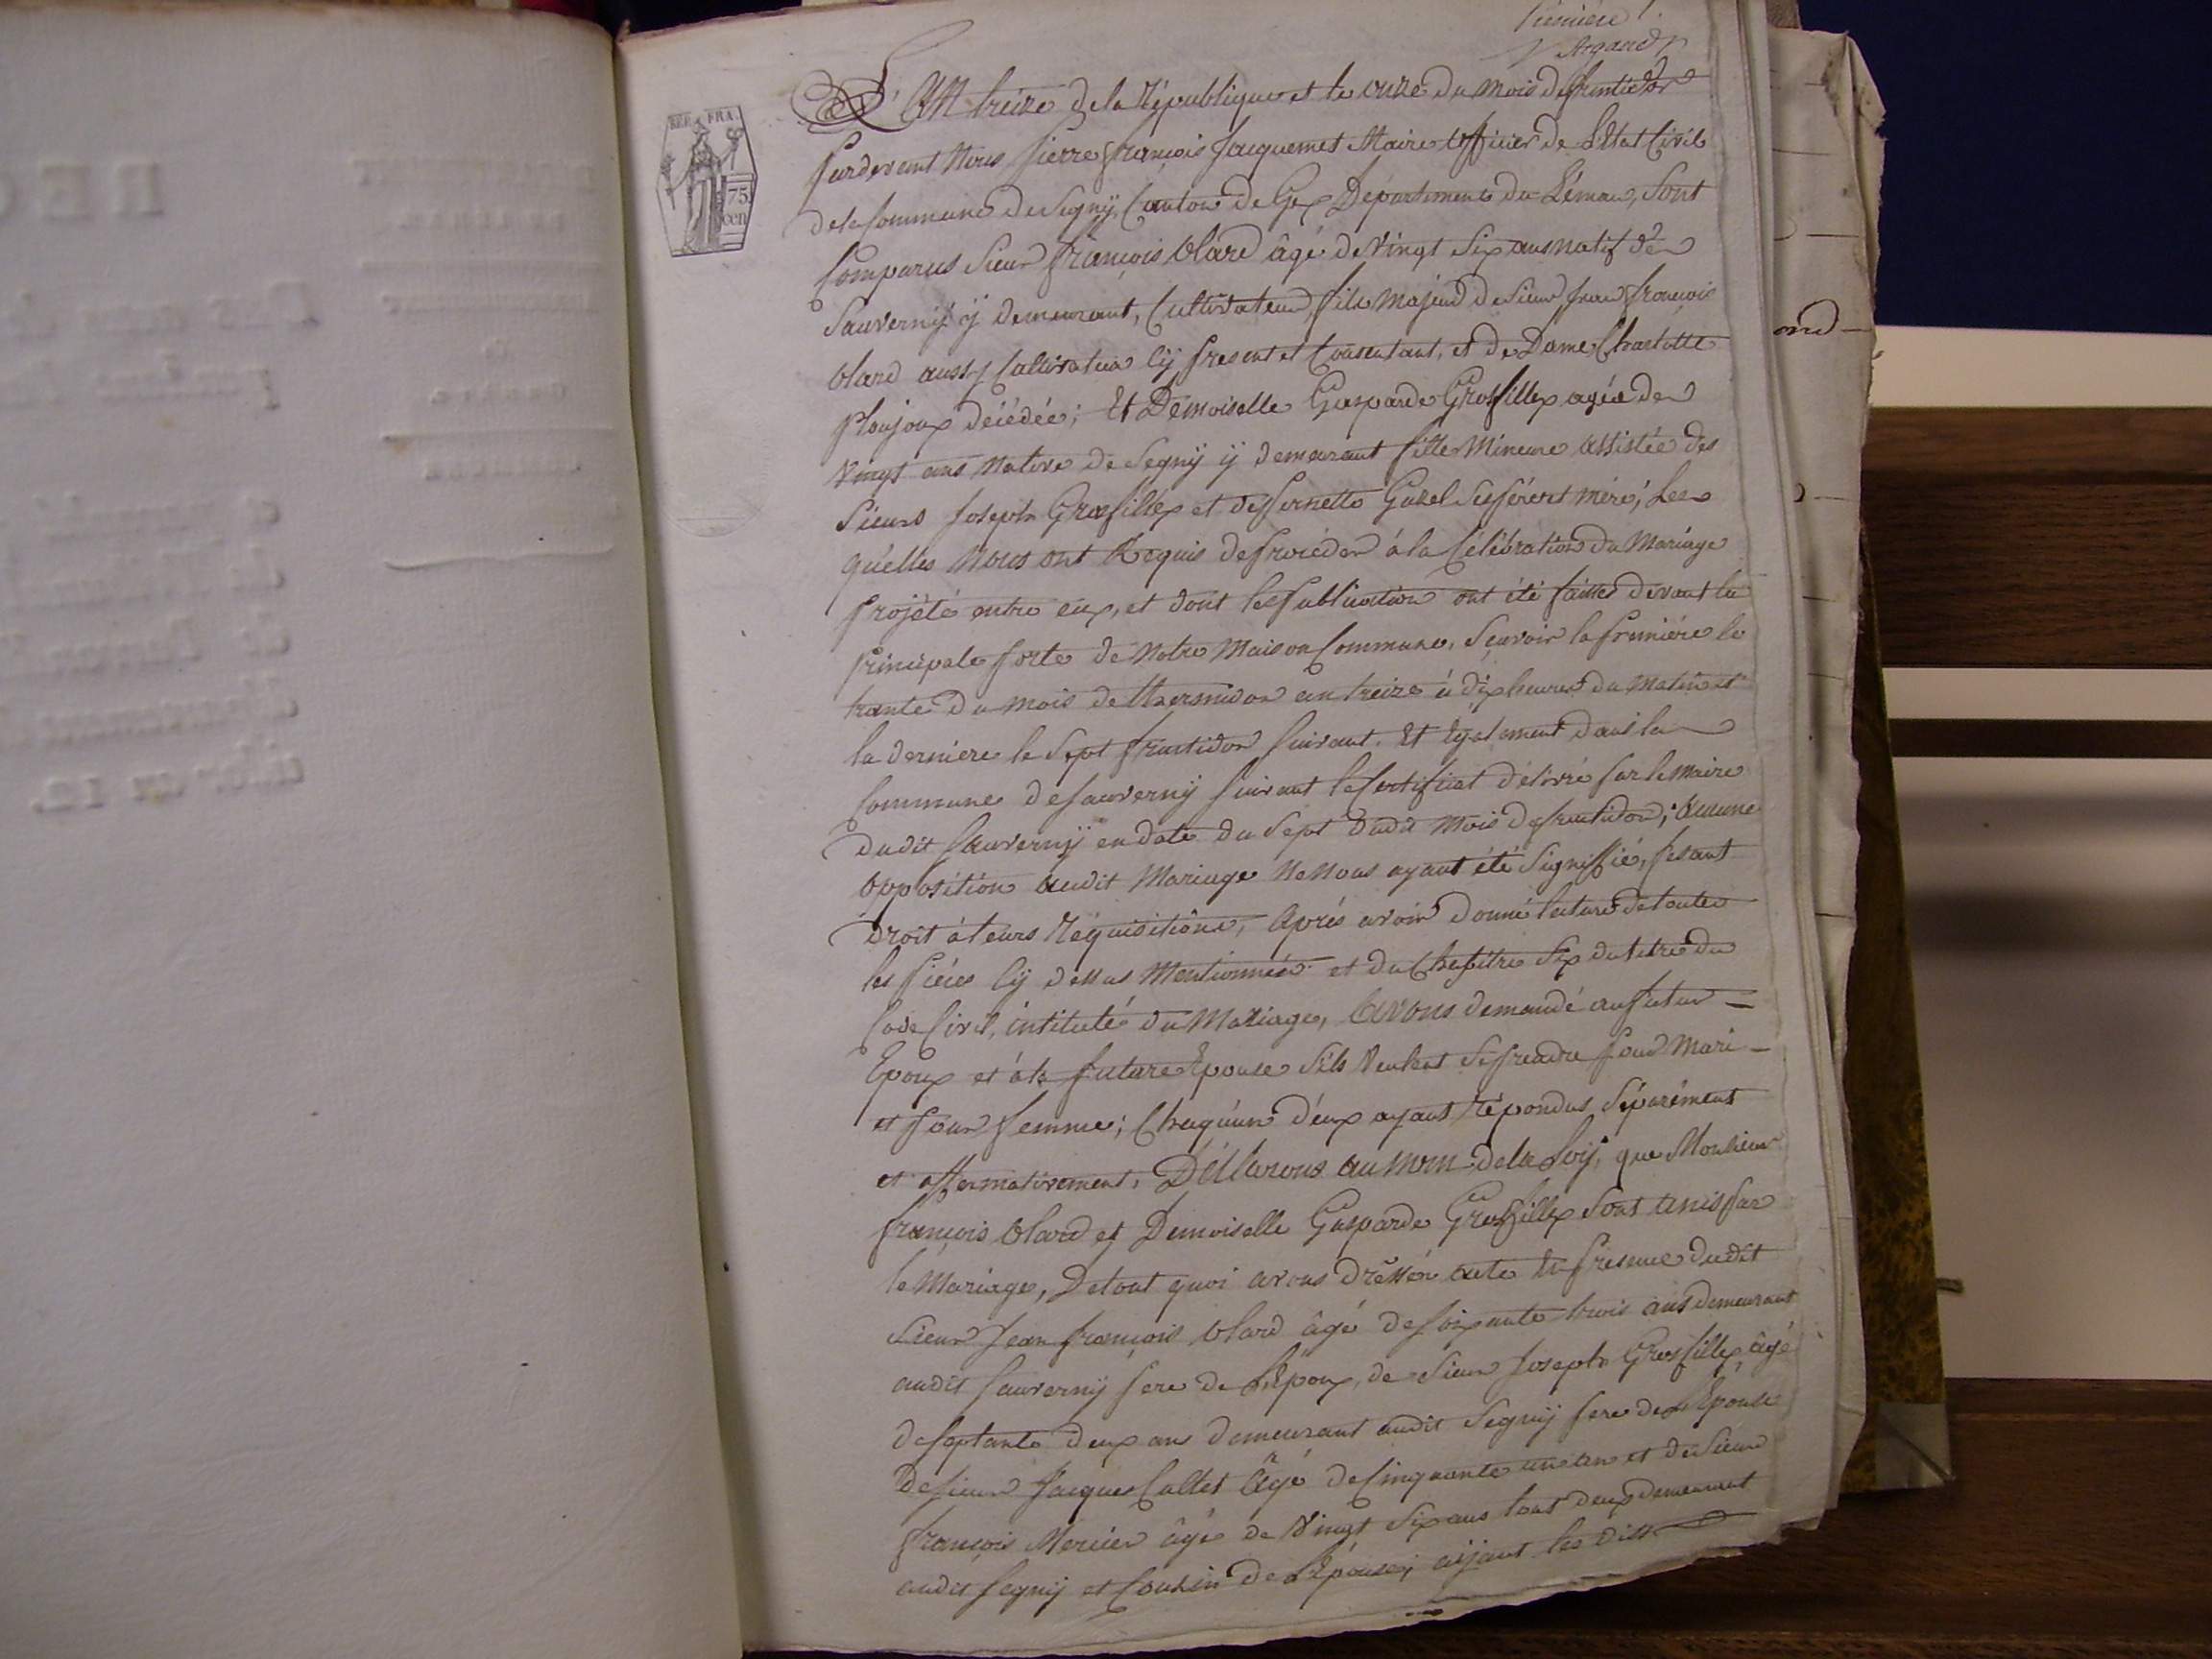 Argand
REP. FRA.
75
cen
L'An treize de la République et le onze du mois de fructidor
pardevent Nous pierre françois Jacquemet Maire officier de L'Etat Civil
de la Commune de Segnÿ, Canton de Gex Département du Léman, Sont
Comparus Sieur françois Olard âgé de Vingt Six ans natif de
Sauvernÿ ÿ demeurant, Cultivateur, fils Majeur de Sieur jean françois
Olard aussy Cultivateur Cÿ present et Consentant, et de Dame Charlotte
Ploujoux décédée; Et Demoiselle Gasparde Grosfillex agée de
Vingt ans Native de Segnÿ ÿ demeurant fille Mineure assistée des
Sieurs Joseph Grosfillex et de pernette Ses père et mère; Les
quelles Nous ont Requis de procéder á la Célébration du Mariage
projété entre eux, et dont les publication ont été faittes devant la
principale porte de Notre Maison Commune, Sçavoir la premiére le
trante du mois de thermidor an treize à dix heures du Matin et
la derniere le Sept fructidor Suivant. Et Egalement dans la
Commune de Sauvernÿ Suivant le Certificat délivré par le Maire
dudit Sauvernÿ en date du Sept dudit Mois de fructidor; Aucune
Opposition audit Mariage Ne Nous ayant été Signiffié, fesant
droit á leurs Réquisitions, Aprés avoir donné lecture de toutes
les piéces Cÿ dessus Mentionnées et du Chapitre Six du titre du
Code Civil, intitulé du Mariage, Avons demandé au futur
Epoux et á la future Epouse S'ils Veulent Se prendre pour Mari
et pour femme; Chaquún d'eux ayant Répondus Séparément
et affermativement, Déclarons au Nom de la Loÿ, que Monsieur
françois Olard et Demoiselle Gasparde Grosfillex Sont Unis par
le Mariage, De tout quoi avons dressér acte En presence dudit
Sieur Jean françois Olard âgé de Soixante trois ans demeurant
audit Sauvernÿ pere de L'Epoux, de Sieur Joseph Grosfillex âgé
de Septante deux ans demeurant audit Segnÿ pere de L'Epouse
de Sieur Jacques Caltet Âgé de Cinquante un an et de Sieur
françois Mercier âgé de Vingt Six ans tout deux demeurant
audit Segnÿ et Cousin de L'Epouse; aÿant les dits
REG
an 12.